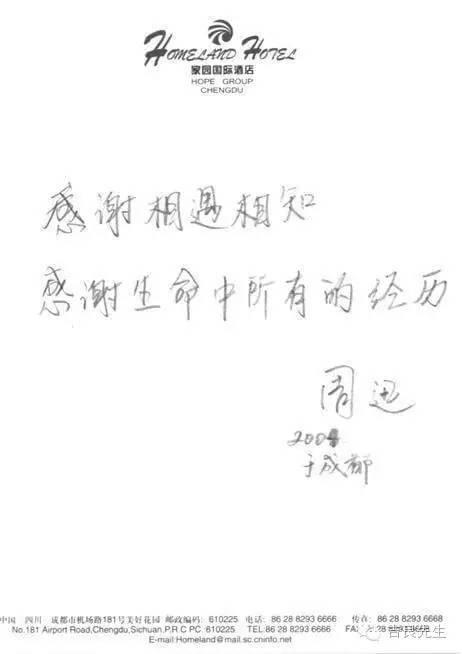 HOMELAND HOTEL
家园国际酒店
HOPE GROUP
CHENGDU
感谢相遇相知
感谢生命中所有的经历
周迅
2004
于成都
中国 四川 成都市机场路181号美好花园 邮政编码: 610225 电话: 86 28 8293 6666 传真: 86 28 8293 6668
No.181 Airport Road,Chengdu,Sichuan,P.R C PC: 610225 TEL:86 28 8293 6666 FAX: 86 28 8293 6668
E-Mail:Homeland@mail.sc.cninfo.net